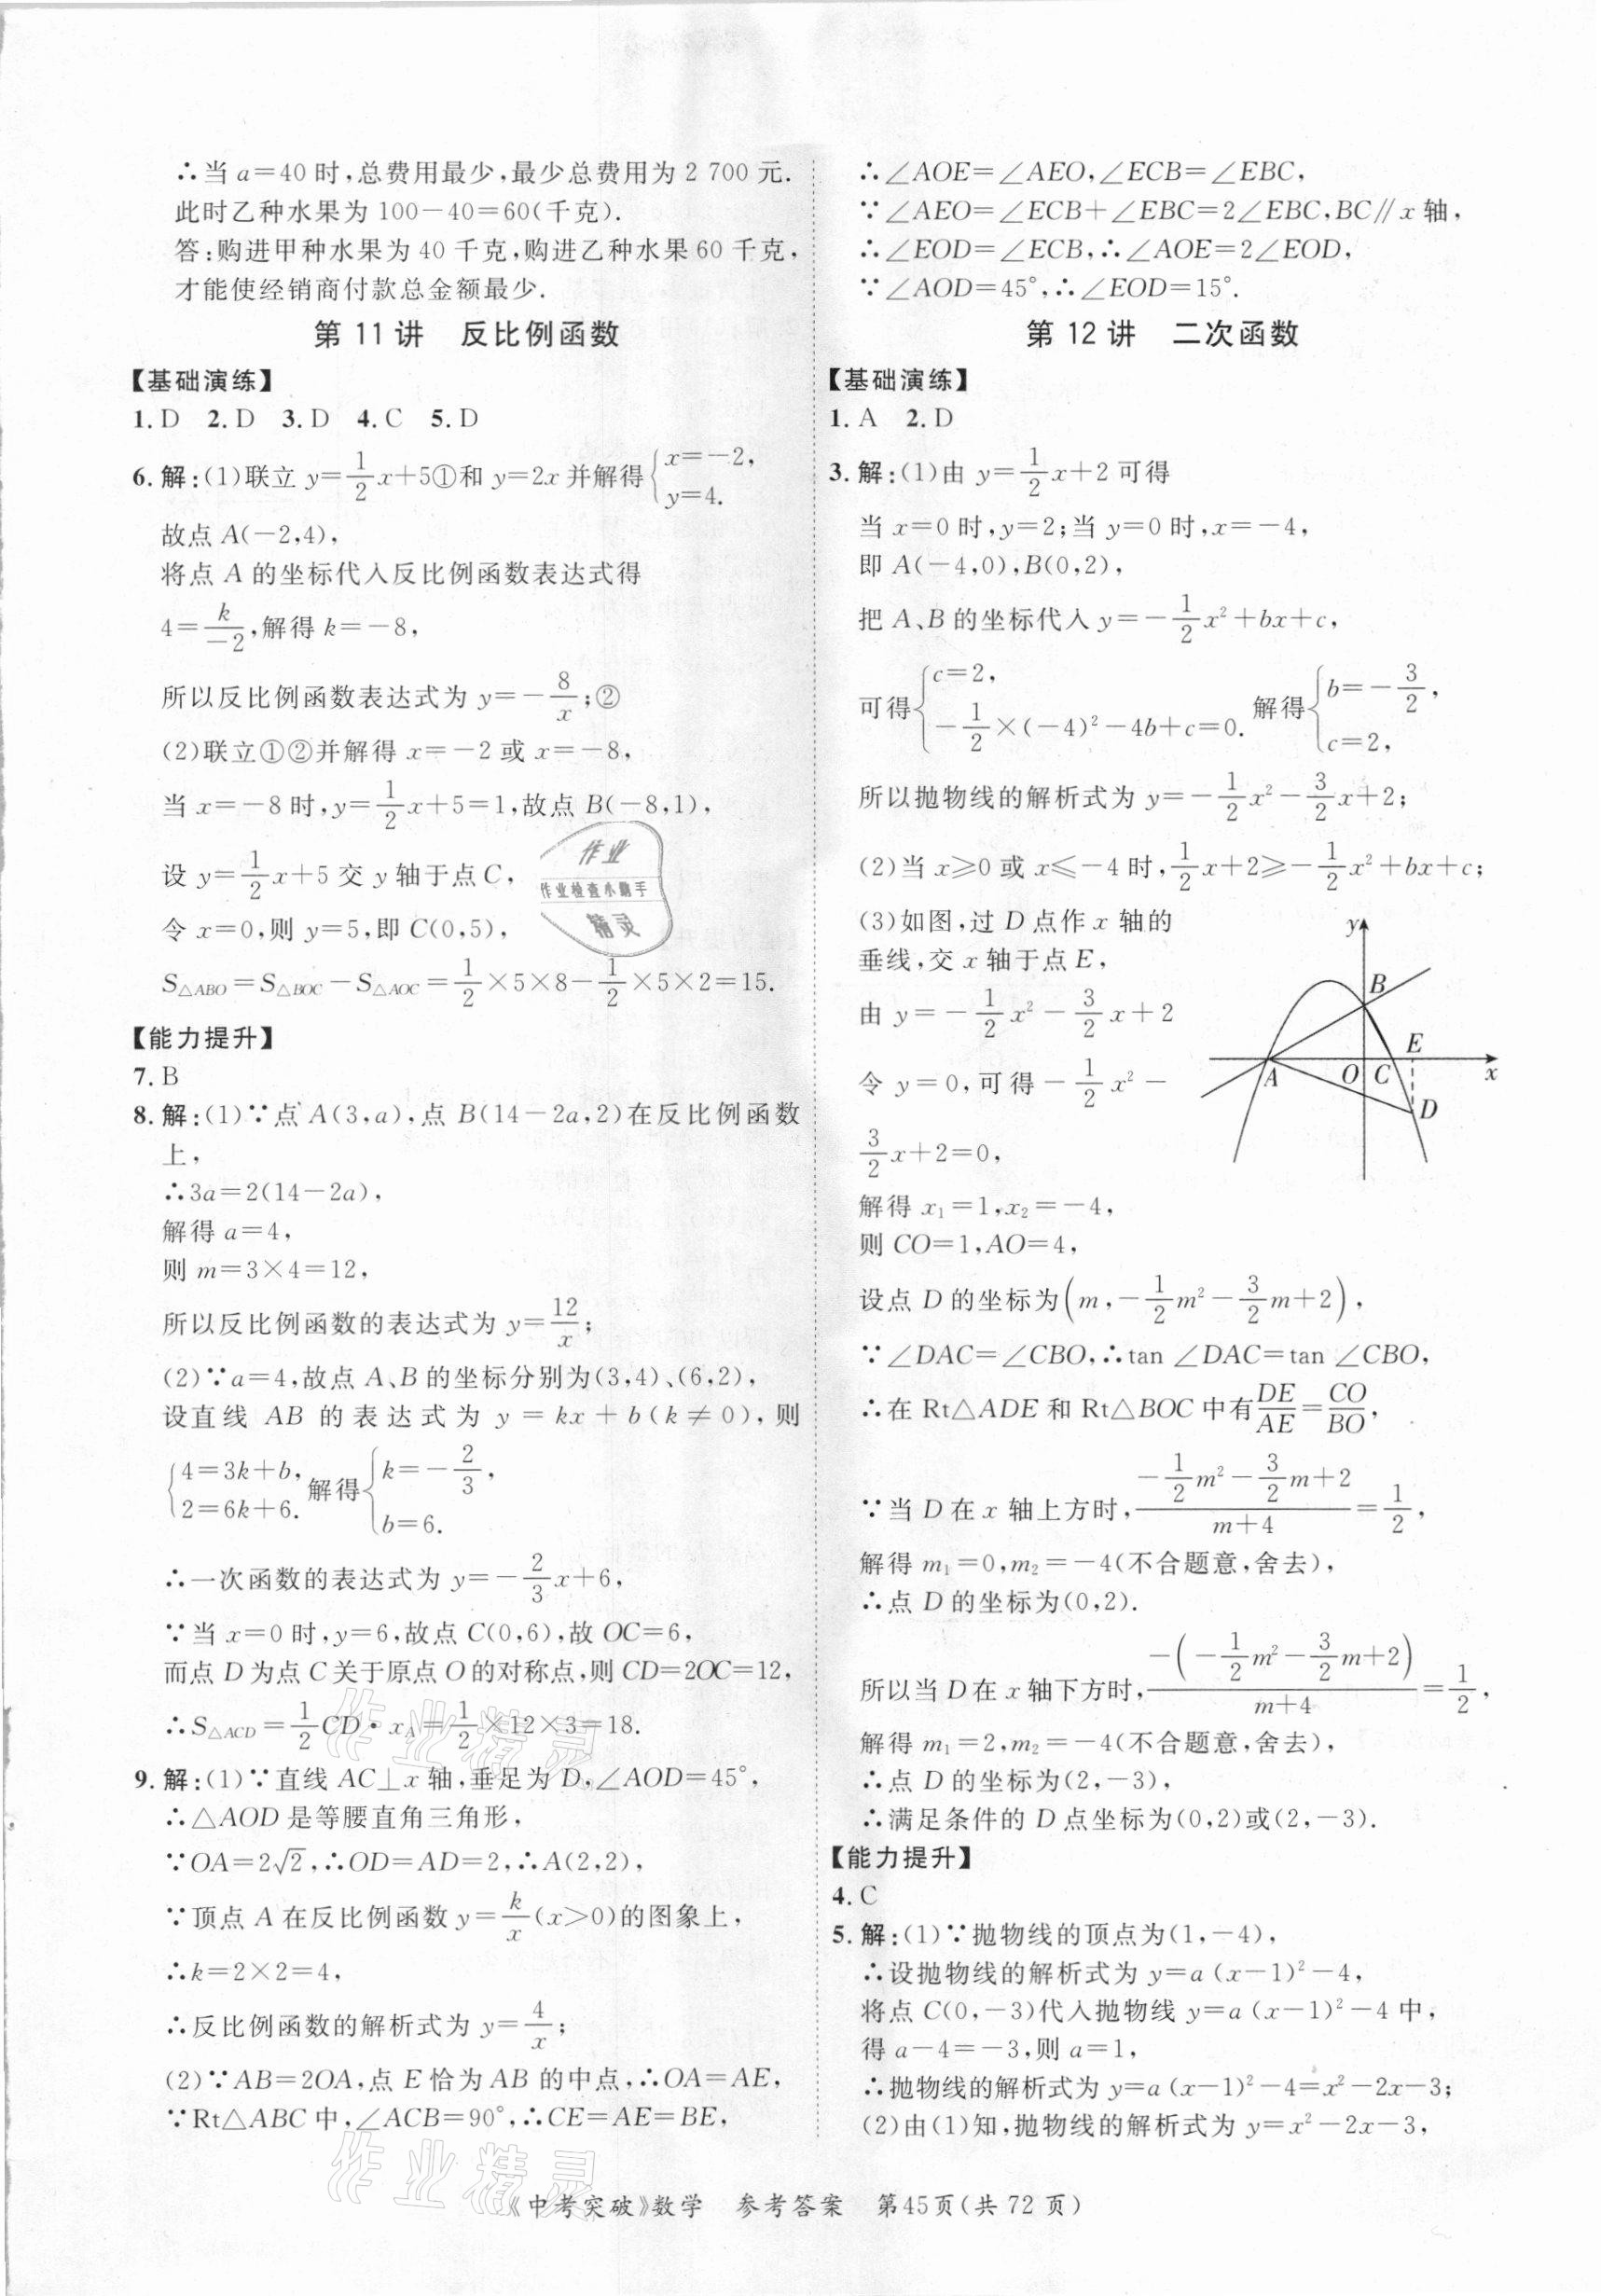 ∴当 a=40 时,总费用最少,最少总费用为 2 700 元.
此时乙种水果为 100-40=60(千克).
答:购进甲种水果为 40 千克,购进乙种水果 60 千克,
才能使经销商付款总金额最少.
第 11 讲 反比例函数
【基础演练】
1. D 2. D 3. D 4. C 5. D
6. 解:(1)联立 y=1/2x+5①和 y=2x 并解得{x=-2, y=4.
故点 A(-2,4),
将点 A 的坐标代入反比例函数表达式得
4=k/-2,解得 k=-8,
所以反比例函数表达式为 y=-8/x;②
(2)联立①②并解得 x=-2 或 x=-8,
当 x=-8 时,y=1/2x+5=1,故点 B(-8,1),
设 y=1/2x+5 交 y 轴于点 C,
令 x=0,则 y=5,即 C(0,5),
S△ABO=S△BOC-S△AOC=1/2×5×8-1/2×5×2=15.
【能力提升】
7. B
8. 解:(1)∵点 A(3,a),点 B(14-2a,2)在反比例函数
上,
∴3a=2(14-2a),
解得 a=4,
则 m=3×4=12,
所以反比例函数的表达式为 y=12/x;
(2)∵a=4,故点 A、B 的坐标分别为(3,4)、(6,2),
设直线 AB 的表达式为 y=kx+b(k≠0),则
{4=3k+b, 2=6k+6. 解得{k=-2/3, b=6.
∴一次函数的表达式为 y=-2/3x+6,
∵当 x=0 时,y=6,故点 C(0,6),故 OC=6,
而点 D 为点 C 关于原点 O 的对称点,则 CD=2OC=12,
∴S△ACD=1/2CD·xA=1/2×12×3=18.
9. 解:(1)∵直线 AC⊥x 轴,垂足为 D,∠AOD=45°,
∴△AOD 是等腰直角三角形,
∵OA=2√2,∴OD=AD=2,∴A(2,2),
∵顶点 A 在反比例函数 y=k/x(x>0)的图象上,
∴k=2×2=4,
∴反比例函数的解析式为 y=4/x;
(2)∵AB=2OA,点 E 恰为 AB 的中点,∴OA=AE,
∵Rt△ABC 中,∠ACB=90°,∴CE=AE=BE,
∴∠AOE=∠AEO,∠ECB=∠EBC,
∵∠AEO=∠ECB+∠EBC=2∠EBC,BC∥x 轴,
∴∠EOD=∠ECB,∴∠AOE=2∠EOD,
∵∠AOD=45°,∴∠EOD=15°.
第 12 讲 二次函数
【基础演练】
1. A 2. D
3. 解:(1)由 y=1/2x+2 可得
当 x=0 时,y=2;当 y=0 时,x=-4,
即 A(-4,0),B(0,2),
把 A、B 的坐标代入 y=-1/2x²+bx+c,
可得{c=2, -1/2×(-4)²-4b+c=0. 解得{b=-3/2, c=2,
所以抛物线的解析式为 y=-1/2x²-3/2x+2;
(2)当 x≥0 或 x≤-4 时,1/2x+2≥-1/2x²+bx+c;
(3)如图,过 D 点作 x 轴的
垂线,交 x 轴于点 E,
由 y=-1/2x²-3/2x+2
令 y=0,可得-1/2x²-
3/2x+2=0,
y
B
E
A
O
C
x
D
解得 x₁=1,x₂=-4,
则 CO=1,AO=4,
设点 D 的坐标为(m,-1/2m²-3/2m+2),
∵∠DAC=∠CBO,∴tan ∠DAC=tan ∠CBO,
∴在 Rt△ADE 和 Rt△BOC 中有DE/AE=CO/BO,
∵当 D 在 x 轴上方时,(-1/2m²-3/2m+2)/(m+4)=1/2,
解得 m₁=0,m₂=-4(不合题意,舍去),
∴点 D 的坐标为(0,2).
所以当 D 在 x 轴下方时,-(-1/2m²-3/2m+2)/(m+4)=1/2,
解得 m₁=2,m₂=-4(不合题意,舍去),
∴点 D 的坐标为(2,-3),
∴满足条件的 D 点坐标为(0,2)或(2,-3).
【能力提升】
4. C
5. 解:(1)∵抛物线的顶点为(1,-4),
∴设抛物线的解析式为 y=a (x-1)²-4,
将点 C(0,-3)代入抛物线 y=a (x-1)²-4 中,
得 a-4=-3,则 a=1,
∴抛物线的解析式为 y=a (x-1)²-4=x²-2x-3;
(2)由(1)知,抛物线的解析式为 y=x²-2x-3,
《中考突破》数学 参考答案 第45页(共 72 页)
作业
作业检查小助手
精灵
作业精灵
作业精灵